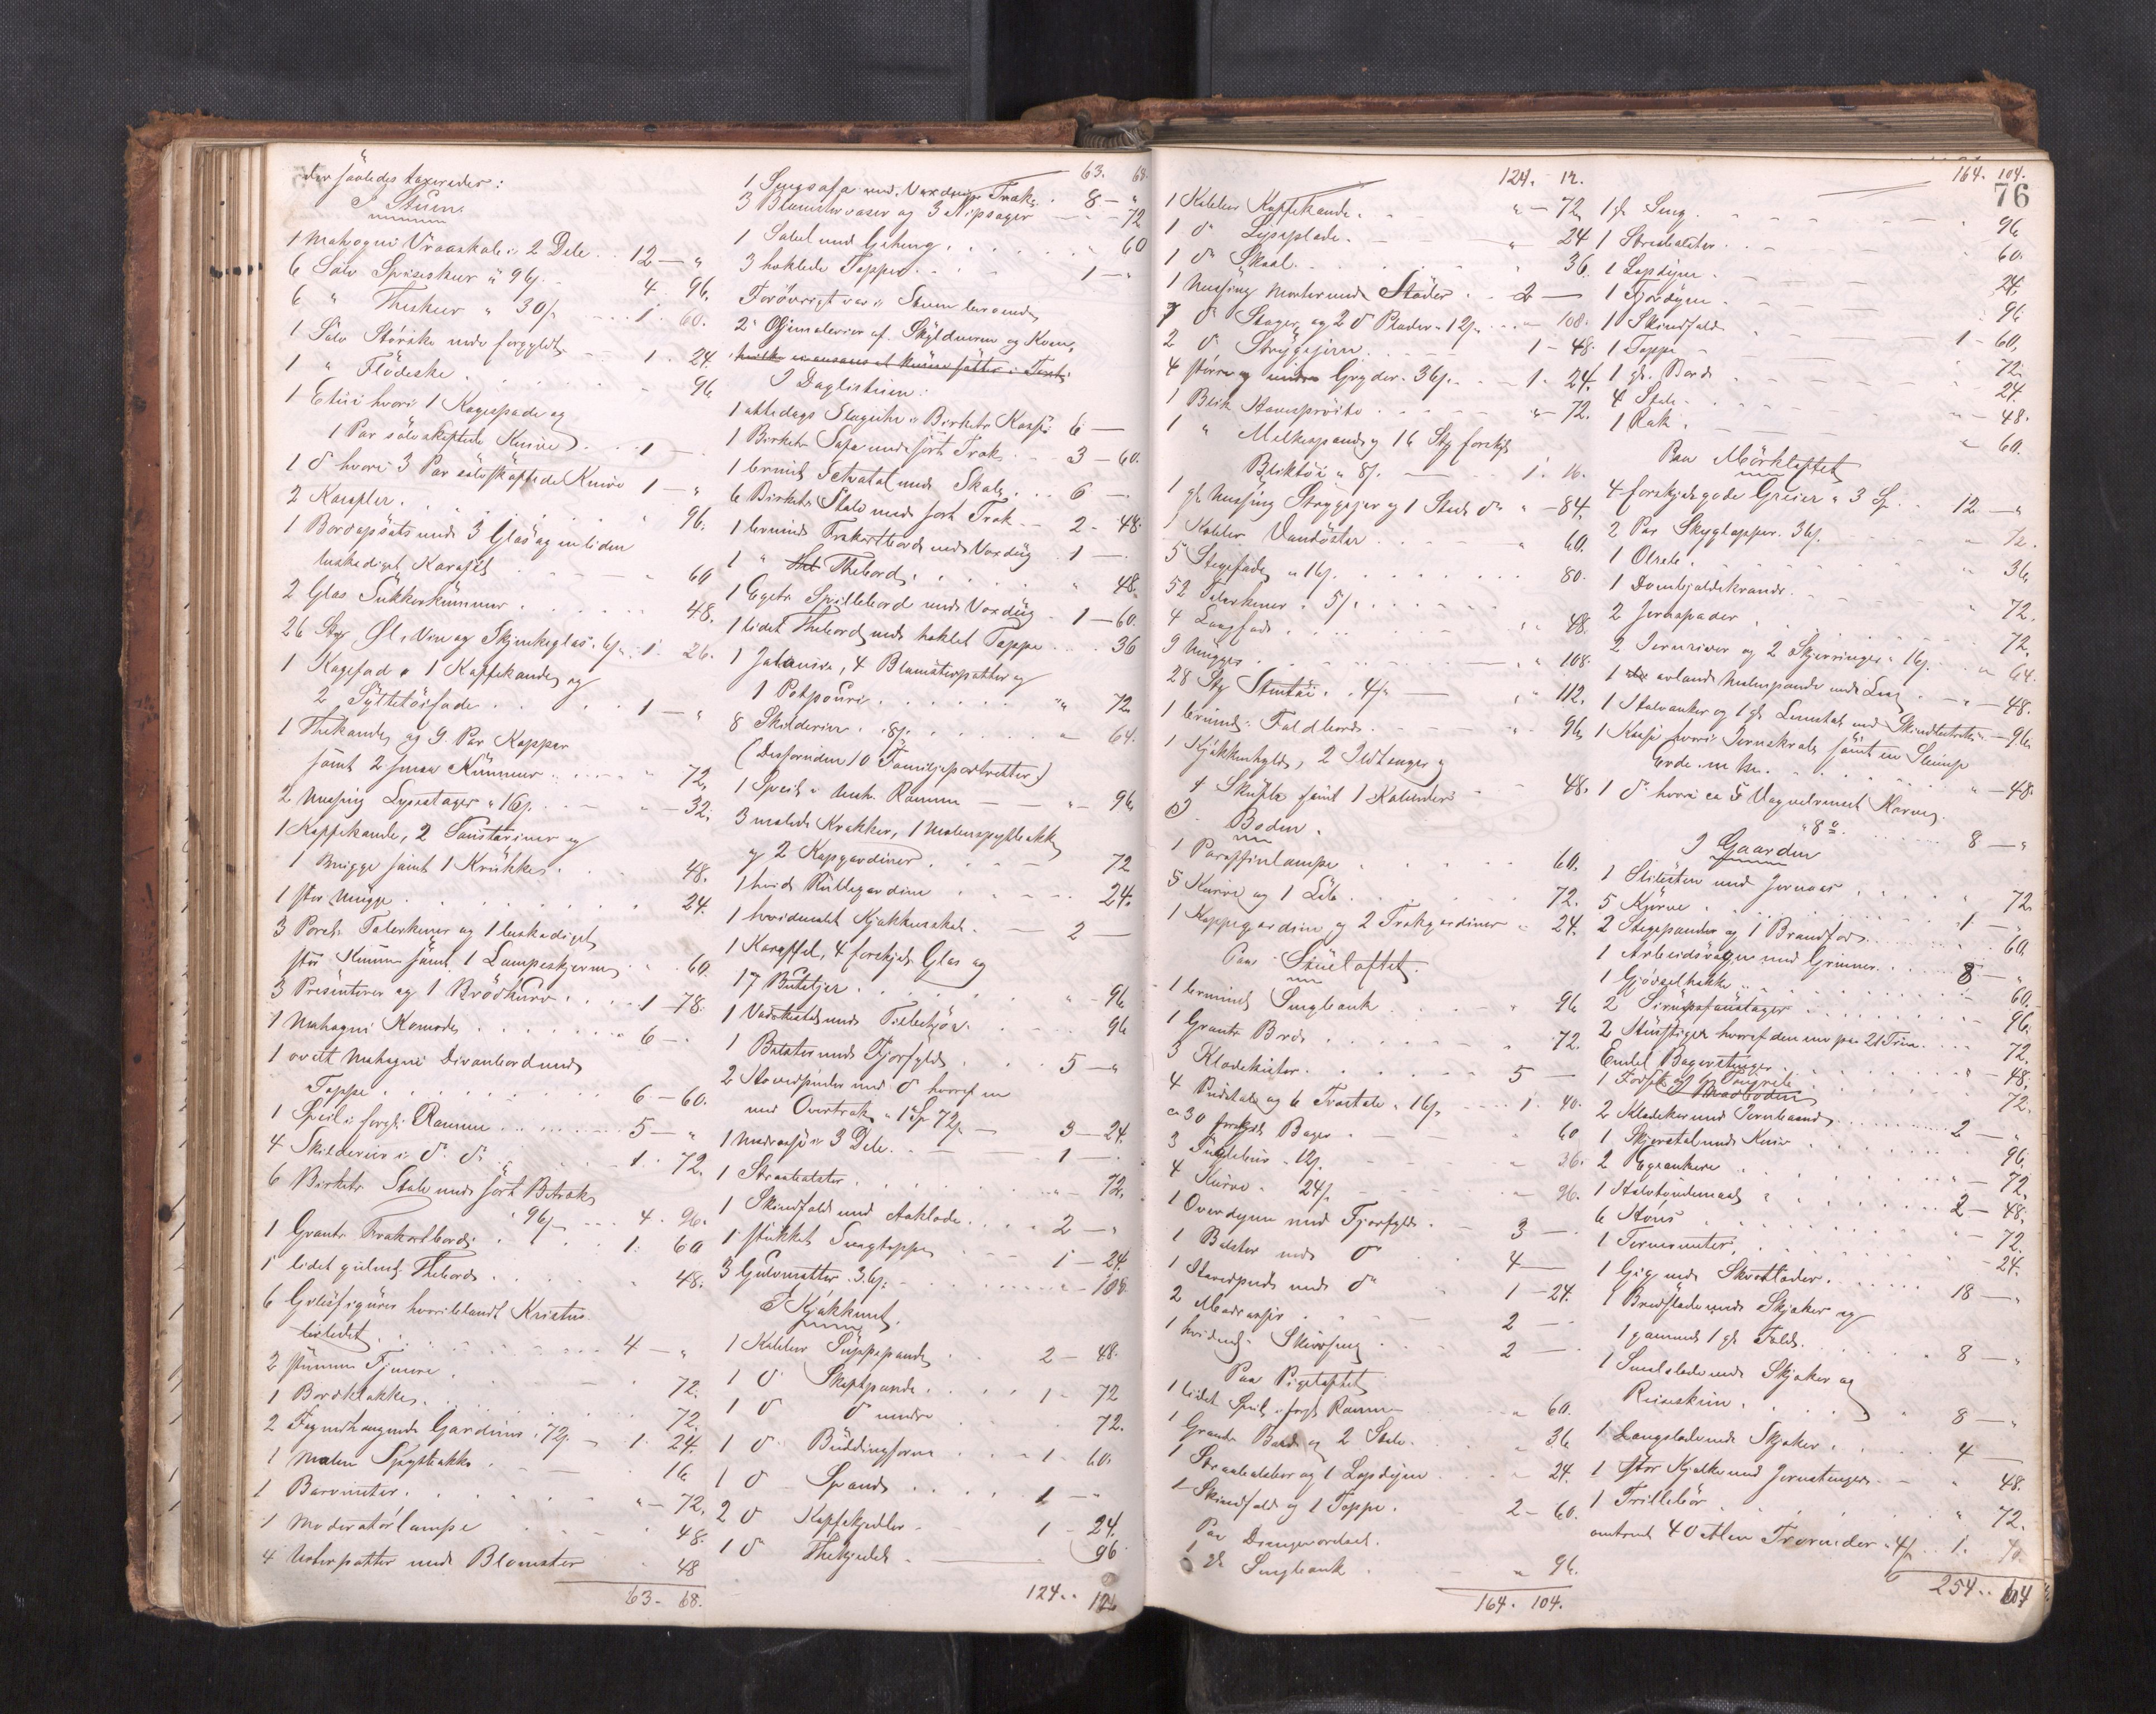 der saaledes taxeredes:
I Stuen.
1 Mahogni Vraaskab i 2 Dele . . 12 — "
6 Sølv Spiseskeer a 96 s. - 4. 96.
6 " Theskeer a 30 s. - 1. 60.
1 Sølv Strøske nedr forgyldt - 1. 24.
1 " Flødeske . . . 96
1 Etui hvori 1 Kagespade og
1 Par sølvskaftede Knive . . 1 —
1 do hvori 3 Par sølvskaftede Knive 1 — "
2 Karafler . . . 96.
1 Bordopsats med 3 Glas og en liden
beskadiget Karafel . . 60
2 Glas Sukkerkummer . . . 48.
26 Stk Øl, Vin og Skjenkeglas a 6 s. 1. 26.
1 Kagefad, 1 Kaffekande og
2 Syltetøifade . . . 1 — "
1 Thekande og 9 Par Kopper
samt 2 smaa Kummer . . . 72.
2 Messing Lysestager a 16 s. . . — 32.
1 Kaffekande, 2 Saustariner og
1 Mugge samt 1 Krukke . . 48.
1 stor Mugge . . . 24.
3 Porcel. Talerkener og 1 beskadiget
stor Kumme samt 1 Lampeskjerm . . 60.
3 Presenterer og 1 Brødkurv . . . 1 - 78.
1 Mahogni Komode . . . 6 —
1 ovalt Mahogni Divanbord med
Teppe . . . 6 — 60.
1 Speil i forgt. Ramme . . . 5 — "
4 Skilderier i do do . . 1. 72.
6 Birketr. Stole med sort Betræk
a 96 s. — 4. 96.
1 Grantr. Frokostbord . . 1. 60
1 lidet gulmt. Thebord . . . 48.
6 Gibsfigurer hvoriblandt Kristus-
billedet . . . 4 — "
2 stumme Tjenere . . . 72.
1 Bordklokke . . . 72.
2 Fag nedhængende Gardiner a 72 s. — 1. 24.
1 Malm Spyttebakke . — 16
1 Barometer . . . " — 72.
1 Moderatørlampe . . 48.
4 Urtepotter med Blomster . 48
63 - 68.
63. 68.
1 Sengsofa med Voxdugs Træk . 8 — "
3 Blomstervaser og 3 Nipsager — 72
1 Sabel med Geheng . . . " 60
3 heklede Tepper . . . 1 — "
Forøvrigt var i Stuen beroende
2 Oljemalerier af Skyldneren og Kone,
I Daglistuen:
1 attedags Slaguhr i Birketr. Kasse 6 —
1 Birketr. Sofa med sort Træk . . 3 — 60.
1 brunmt. Schatol med Skab . . . 6 — .
6 Birketr. Stole med sort Træk — 2 - 48.
1 brunmt. Frokostbord med Voxdug . 1 — .
1 " Thebord . . . " 48.
1 Egetr. Spillebord med Voxdug . 1 — 60.
1 lidet Thebord med heklet Teppe . . . 36
1 Jalousie, 4 Blomsterpotter og
1 Potpouri . . . " 72
8 Skilderier a 8 s. . . . " 64.
(Desforuden 10 Familjeportretter)
1 Speil i Mah. Ramme — — " — 96
3 malede Krakker, 1 Malmspyttebakke
og 2 Kapgardiner . . 72
1 hvid Rullegardine . . — . 24.
1 hvidmalt Kjøkkenskab . — 2 —
1 Karaffel, 4 forskjel. Glas og
17 Buteljer . . . " - 96
1 Vadskestel med Tilbehør . . . 96
1 Bolster med Fjørfyld . . . 5 — "
2 Hovedpuder med do hvoraf en
med Overtræk a 1 Sp 72 s. — 3 — 24.
1 Madrasse i 3 Dele . — — 1 — .
1 Straabolster . . . " — 72.
1 Skindfeld med Aaklæde . . . 2 — "
1 strikket Sengteppe . . — 1 — 24.
3 Gulvmatter a 36 s. . . — 108.
I Kjøkkenet.
1 Kobber Suppepande . . 2 — 48.
1 do Skaftpande . . . . 1 — 72
1 do do mindre . . 72.
1 do Buddingform . . . 1 - 60.
1 do Spand . . . 1 — "
2 do Kaffekjedler . . 1 - 24.
1 do Thekjedel . . 96
124. . 12
124. 12.
1 Kobber Kaffekande . . " — 72
1 do Lyseplade . — " 24
1 do Skaal . . . " 36.
1 Messing Morter med Støder . . 2 —
7 do Stager og 2 do Plader a 12 s. . . — 108.
2 do Strygejern . . 1 - 48.
4 større og mindre Gryder a 36 s. . . 1. 24.
1 Blik Havesprøite . . . " — 72.
1 " Melkespand og 16 Stk forskj.
Bliktøi a 8 s. . — 1. 16.
1 gl. Messing Strygejern og 1 Stads do " — 84.
1 Kobber Vandøster . . . " 60.
5 Stegefade a 16 s. . . . 80.
52 Talerkener a 5 s. . . .
4 Langfade . . . " 48.
9 Mugger . . . — " 108.
28 Stk Stentøi a 4 s. — " 112.
1 brunmt. Foldbord . . . " 96
1 Kjøkkenhylde, 2 Ildtænger og
4 Skuffer samt 1 Kalender . — 48.
I Boden.
1 Paraffinlampe . . . 60.
5 Kurve og 1 Løb . . . 72.
1 Kappegardin og 2 Trækgardiner " 24.
Paa Stueloftet.
1 brunmt. Sengbænk . . " 96
1 Grantr. Bord . . . 72.
3 Klædekister . . . 5 —
4 Pindstole og 6 Træstole a 16 s. . . . 1. 40.
ca 30 forskjel. Bøger . . " 60
3 Fuglebur a 12 s. . . " 36.
4 Kurve a 24 s. . — " 96.
1 Overdyne med Fjørfyld . — 3 —
1 Bolster med do . . . 4 —
1 Hovedpude med do . " 1 - 24.
2 Madrasser . . . 2 —
1 hvidmt. Skuvseng . . . 2 —
Paa Pigeloftet
1 lidet Speil i forgt. Ramme . " 60.
1 Grantr. Bord og 2 Stole . . " 36
1 Straabolster og 1 Lopdyne . . " 24.
1 Skindfeld og 1 Teppe . 2 — 60.
Paa Drengeværelset.
1 gl. Sengbænk . . " 96.
164. 104.
164. 104.
76
1 gl. Seng . . . 96
1 Straabolster . . . 60.
1 Lopdyne . . . 24.
1 Fjørdyne . . . 96
1 Skindfeld . . . 1 - 60.
1 Teppe . . . 72.
1 gl. Bord . . . 24.
4 Stole . . . " — 48.
1 Rok . . . " 60.
Paa Mørkloftet
4 forskjel. gode Greier a 3 Sp. . 12 — "
2 Par Skyglapper a 36 s. . . " 72.
1 Olrede . . . " 36
1 Dombjeldekrands . . " 72.
2 Jernspader . . . 72.
2 Jernriver og 2 Skjæringer a 16 s. . . " 64.
1 avlang Malmpande med Laag . . " — 48.
1 Halvanker og 1 gl. Lænestol med Skindbetræk . — 96
1 Kasse hvori Jernskrab samt en Slump
Erde m. m. . . . " — 48.
1 do hvori ca 5 Vog urenset Korn
a 8 s. . . . 8 — "
I Gaarden
1 Slibesten med Jernaas . . . 72.
5 Kjørner . . . 1 — "
2 Stegepander og 1 Brandfod . . . 60.
1 Arbeidsvogn med Grinner . . . 8 — "
1 Gjødselhakke . . . 60.
2 Sirupsfoustager . . . 96.
2 Huusstiger hvoraf den ene paa 21 Trin . . . 72.
Endel Bagerstænger . . . — 48.
72.
2 Klædekar med Jernbaand . . . 2 — "
1 Skjærestol med Kniv . . . 96.
2 Egeankere . . . 72.
1 Halvtøndemaal . . . 2 — 48.
6 Høns . . . — 72.
1 Tørvemuter . . . — 24.
1 Gig med Skvætlæder . . . 18 — "
1 Bredslæde med Skjæker og
1 gammel 1 gl. Feld . . . 8 — "
1 Smalslæde med Skjæker og
Reinskind . . . 8 — "
1 Langslæde med Skjæker . . . 4 —
1 stor Kjælke med Jernstænger . . . 48.
1 Trillebør . . . " 72.
omtrent 40 Alen Trærender a 4 s. . . 1. 40.
254 . . 104